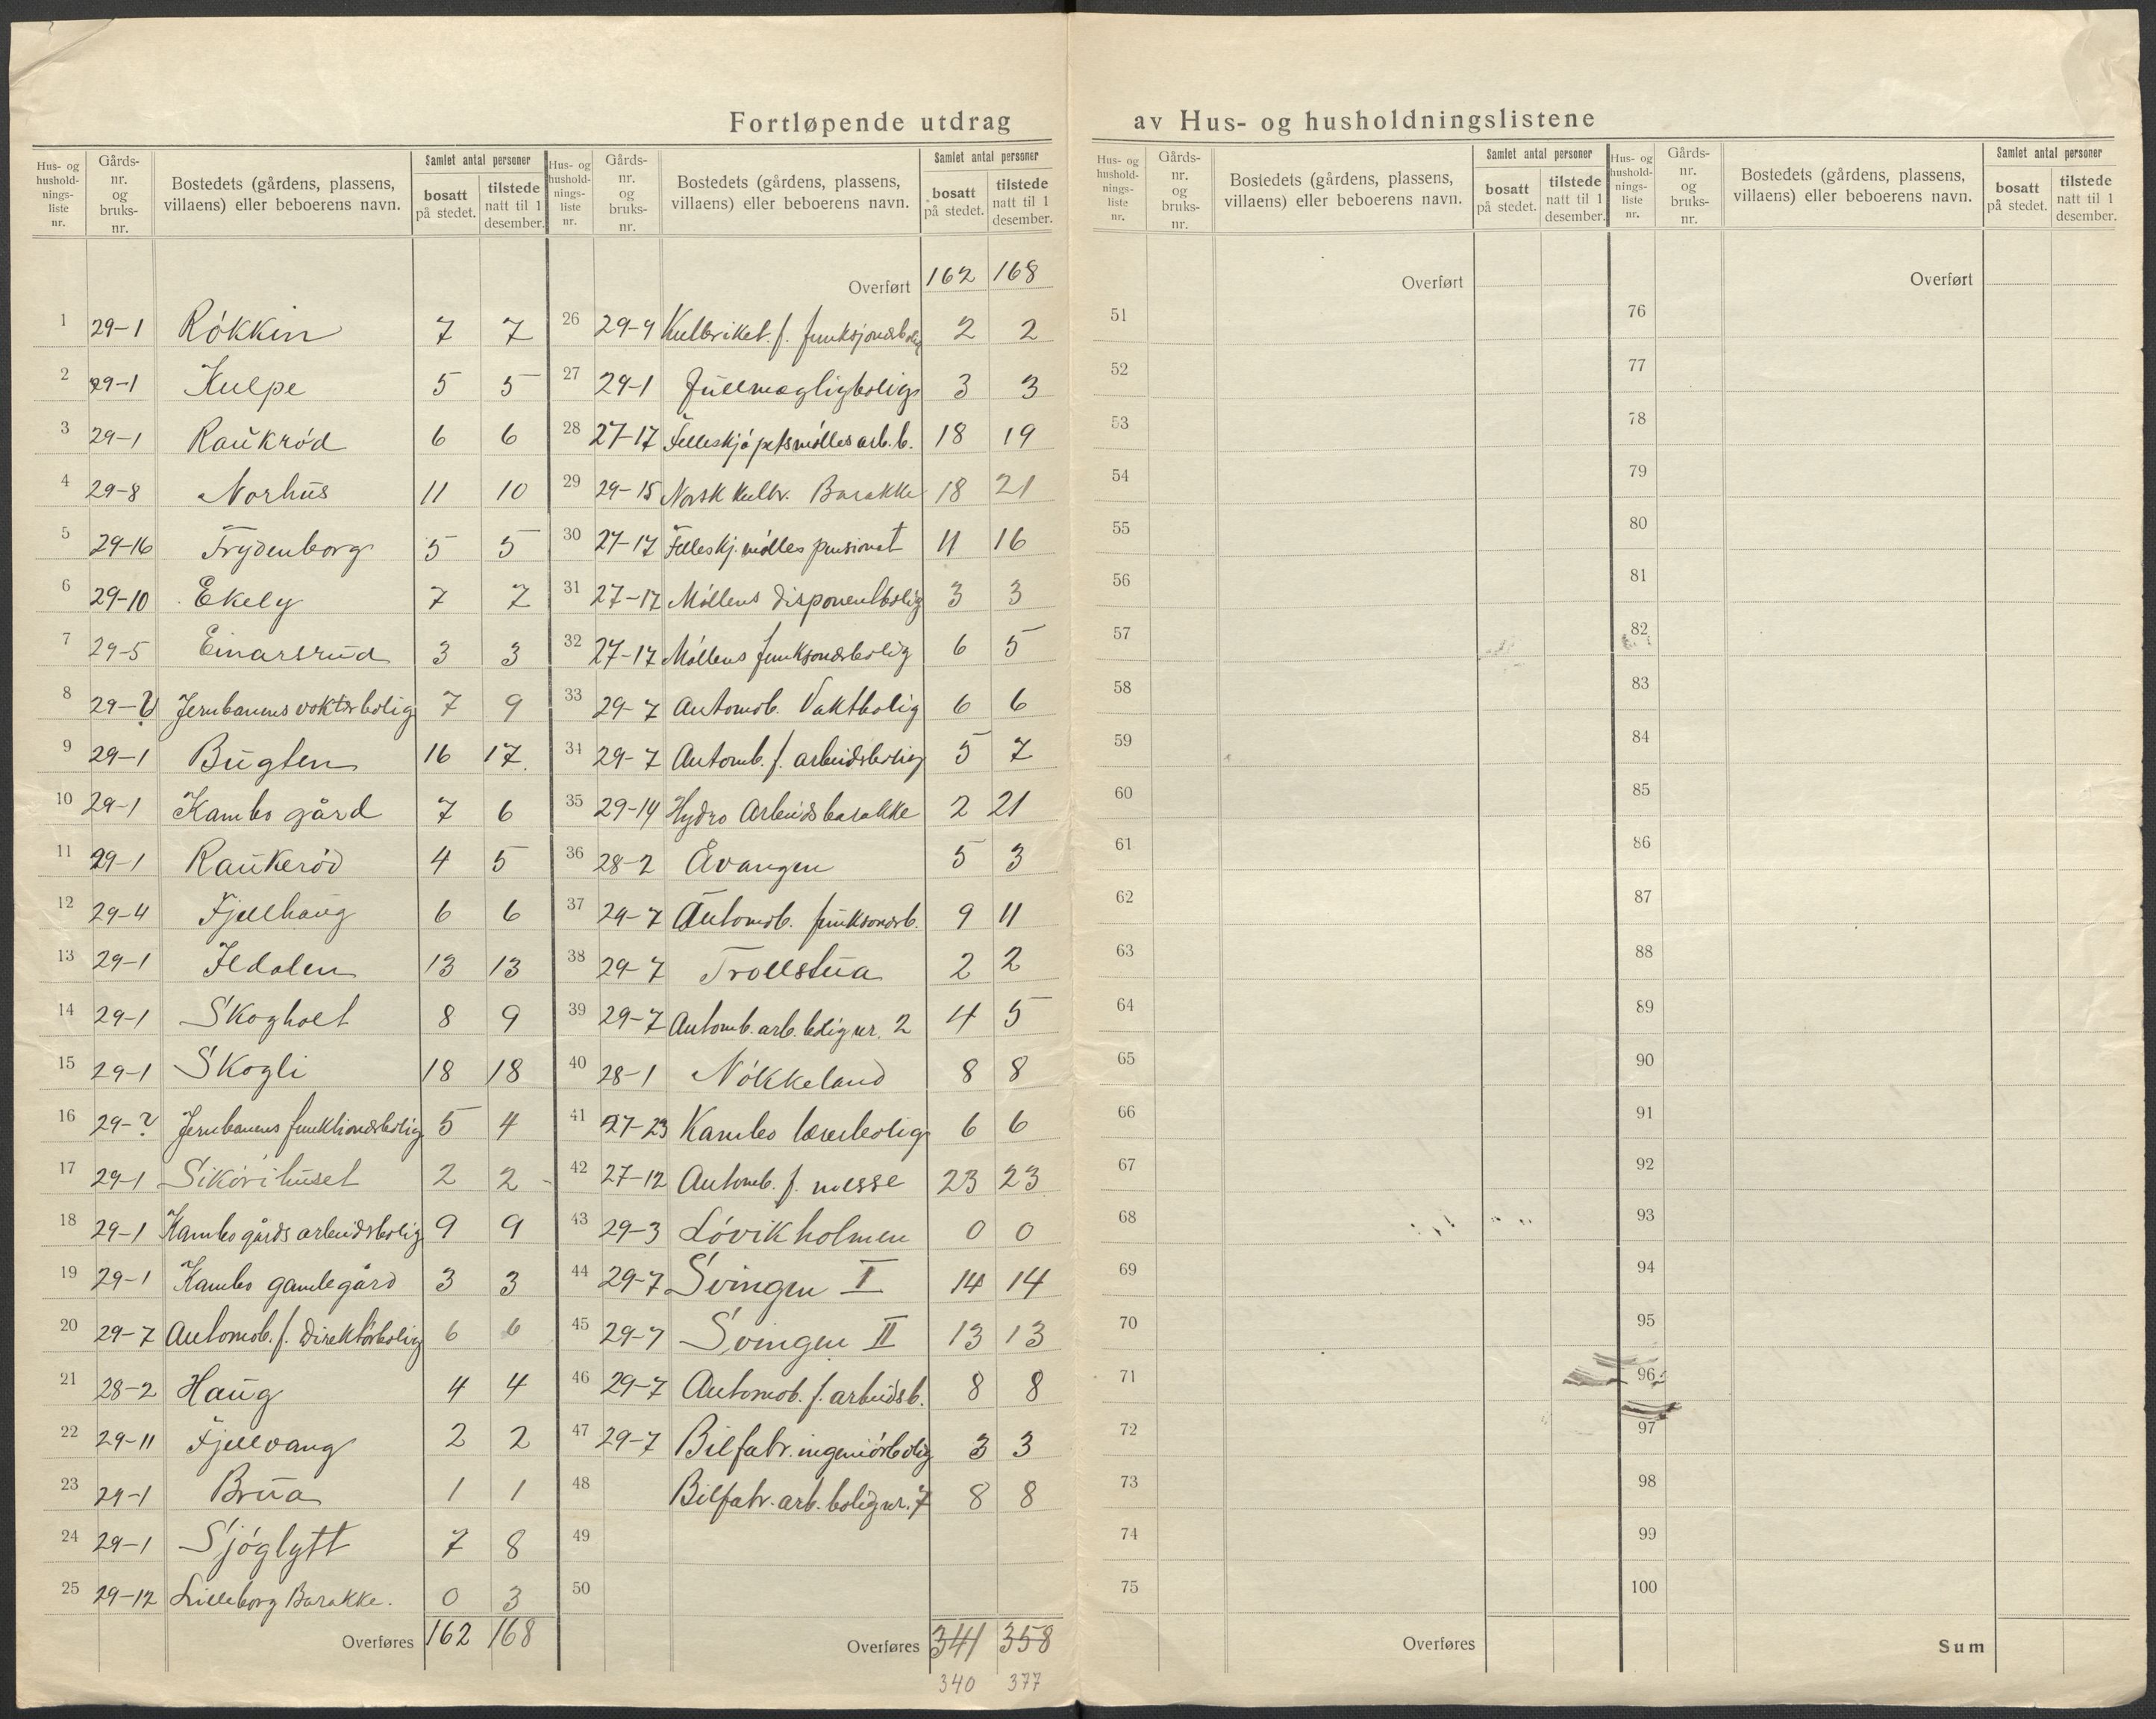 Fortløpende utdrag av Hus- og husholdningslistene
Hus- og hushold-nings-liste nr. Gårds-nr. og bruks-nr. Bostedets (gårdens, plassens, villaens) eller beboerens navn. Samlet antal personer bosatt på stedet. tilstede natt til 1 desember.
1 29-1 Rökkin 7 7
2 29-1 Kulpe 5 5
3 29-1 Raukröd 6 6
4 29-8 Norhus 11 10
5 29-16 Frydenborg 5 5
6 29-10 Ekely 7 7
7 29-5 Einarsrud 3 3
8 29-? Jernbanens vokterbolig 7 9
9 29-1 Bugten 16 17
10 29-1 Kambo gård 7 6
11 29-1 Raukeröd 4 5
12 29-4 Fjellhaug 6 6
13 29-1 Ildalen 13 13
14 29-1 Skogholt 8 9
15 29-1 Skogli 18 18
16 29-? Jernbanens funktionærbolig 5 4
17 29-1 Sikorihuset 2 2
18 29-1 Kambo gårds arbeidsbolig 9 9
19 29-1 Kambo gamlegård 3 3
20 29-7 Automob. f. Direktörbolig 6 6
21 28-2 Haug 4 4
22 29-11 Fjellvang 2 2
23 29-1 Brua 1 1
24 29-1 Sjöglytt 7 8
25 29-12 Lilleborg Barakke. 0 3
Overføres 162 168
Hus- og hushold-nings-liste nr. Gårds-nr. og bruks-nr. Bostedets (gårdens, plassens, villaens) eller beboerens navn. Samlet antal personer bosatt på stedet. tilstede natt til 1 desember.
Overført 162 168
26 29-9 f. funksjonærbolig 2 2
27 29-1 3 3
28 27-17 Felleskjöpets mölles arb.b. 18 19
29 29-15 Norsk Kulbr. Barakke 18 21
30 27-17 Felleskj. mölles pensionat 11 16
31 27-17 Möllens Disponentbolig 3 3
32 27-17 Möllens funksonærbolig 6 5
33 29-7 Automob. Vaktbolig 6 6
34 29-7 Automb. f. arbeidsbolig 5 7
35 29-14 Hydro Arbeidsbarakke 2 21
36 28-2 Åvangen 5 3
37 29-7 Automob. funksonærb. 9 11
38 29-7 Trollstua 2 2
39 29-7 Automb. arb. bolig nr. 2 4 5
40 28-1 Nökkeland 8 8
41 27-23 Kambo lærerbolig 6 6
42 27-12 Automb. f. messe 23 23
43 29-3 Lövikholmen 0 0
44 29-7 Svingen I 14 14
45 29-7 Svingen II 13 13
46 29-7 Automob. f. arbeidsb. 8 8
47 29-7 Bilfabr. ingeniörbolig 3 3
48 Bilfabr. arb. bolig nr. 7 8 8
49
50
Overføres 341 358
340 377
Hus- og hushold-nings-liste nr. Gårds-nr. og bruks-nr. Bostedets (gårdens, plassens, villaens) eller beboerens navn. Samlet antal personer bosatt på stedet. tilstede natt til 1 desember.
Overført
51
52
53
54
55
56
57
58
59
60
61
62
63
64
65
66
67
68
69
70
71
72
73
74
75
Overføres
Hus- og hushold-nings-liste nr. Gårds-nr. og bruks-nr. Bostedets (gårdens, plassens, villaens) eller beboerens navn. Samlet antal personer bosatt på stedet. tilstede natt til 1 desember.
Overført
76
77
78
79
80
81
82
83
84
85
86
87
88
89
90
91
92
93
94
95
96
97
98
99
100
Sum